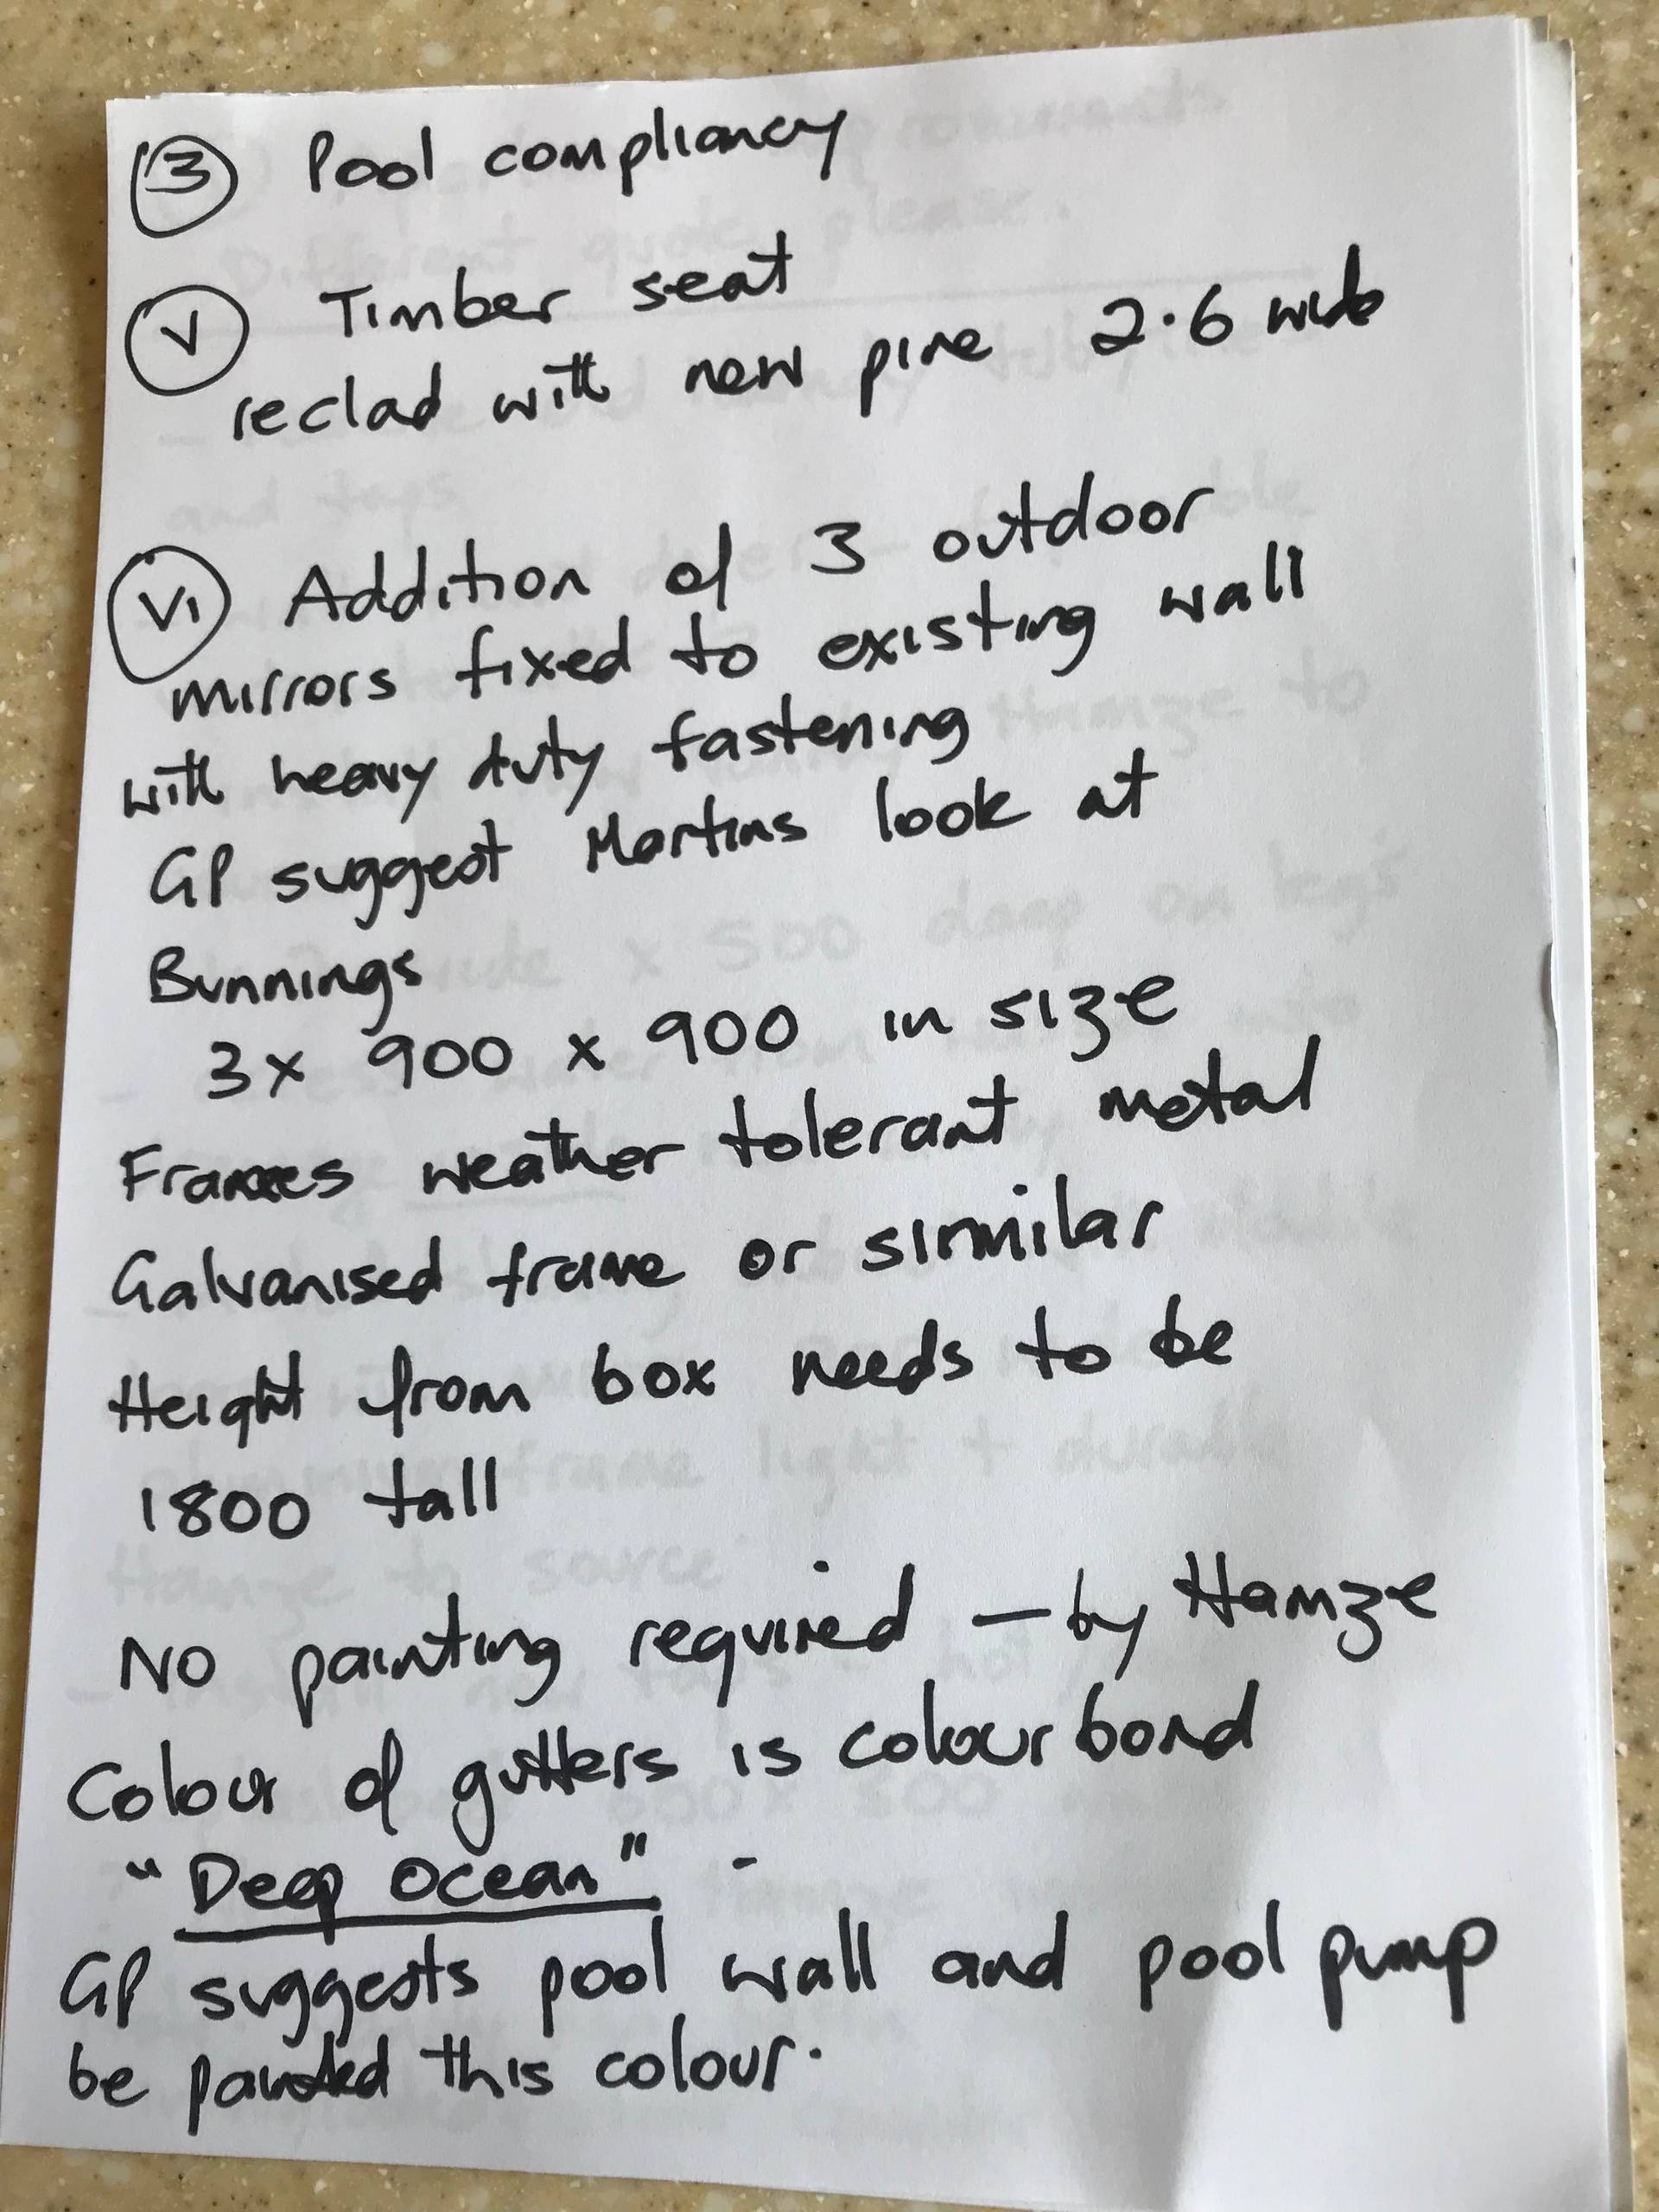 3 Pool compliancy
V Timber seat
reclad with new pine 2.6 wide
VI Addition of 3 outdoor
mirrors fixed to existing wall
with heavy duty fastening
GP suggest Martins look at
Bunnings
3x 900 x 900 in size
Frames weather tolerant metal
Galvanised frame or similar
Height from box needs to be
1800 tall
No painting required - by Hamze
Colour of gutters is colourbond
"Deep Ocean" -
GP suggests pool wall and pool pump
be painted this colour.